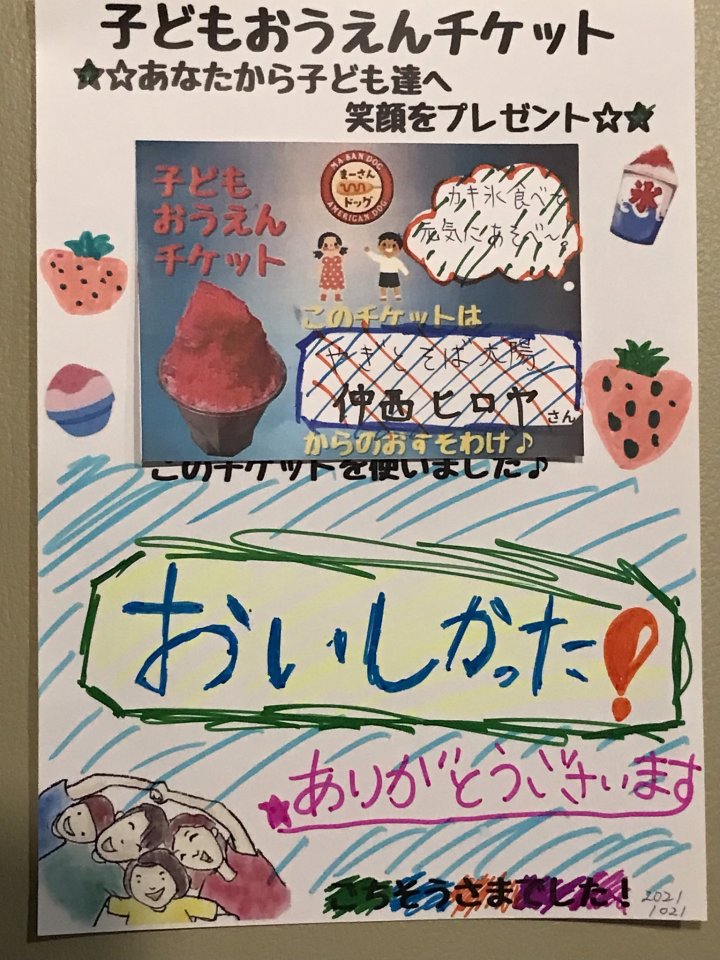 子どもおうえんチケット
★☆あなたから子ども達へ
笑顔をプレゼント☆★
子ども
おうえん
チケット
MA-SAN DOG
まーさん
ドッグ
AMERICAN DOG
カキ氷食べて
元気にあそべ〜!
氷
このチケットは
やぎとそば太陽
仲西 ヒロヤ さん
からのおすそわけ♪
このチケットを使いました♪
おいしかった!
★ありがとうございます
ごちそうさまでした!
2021
1021